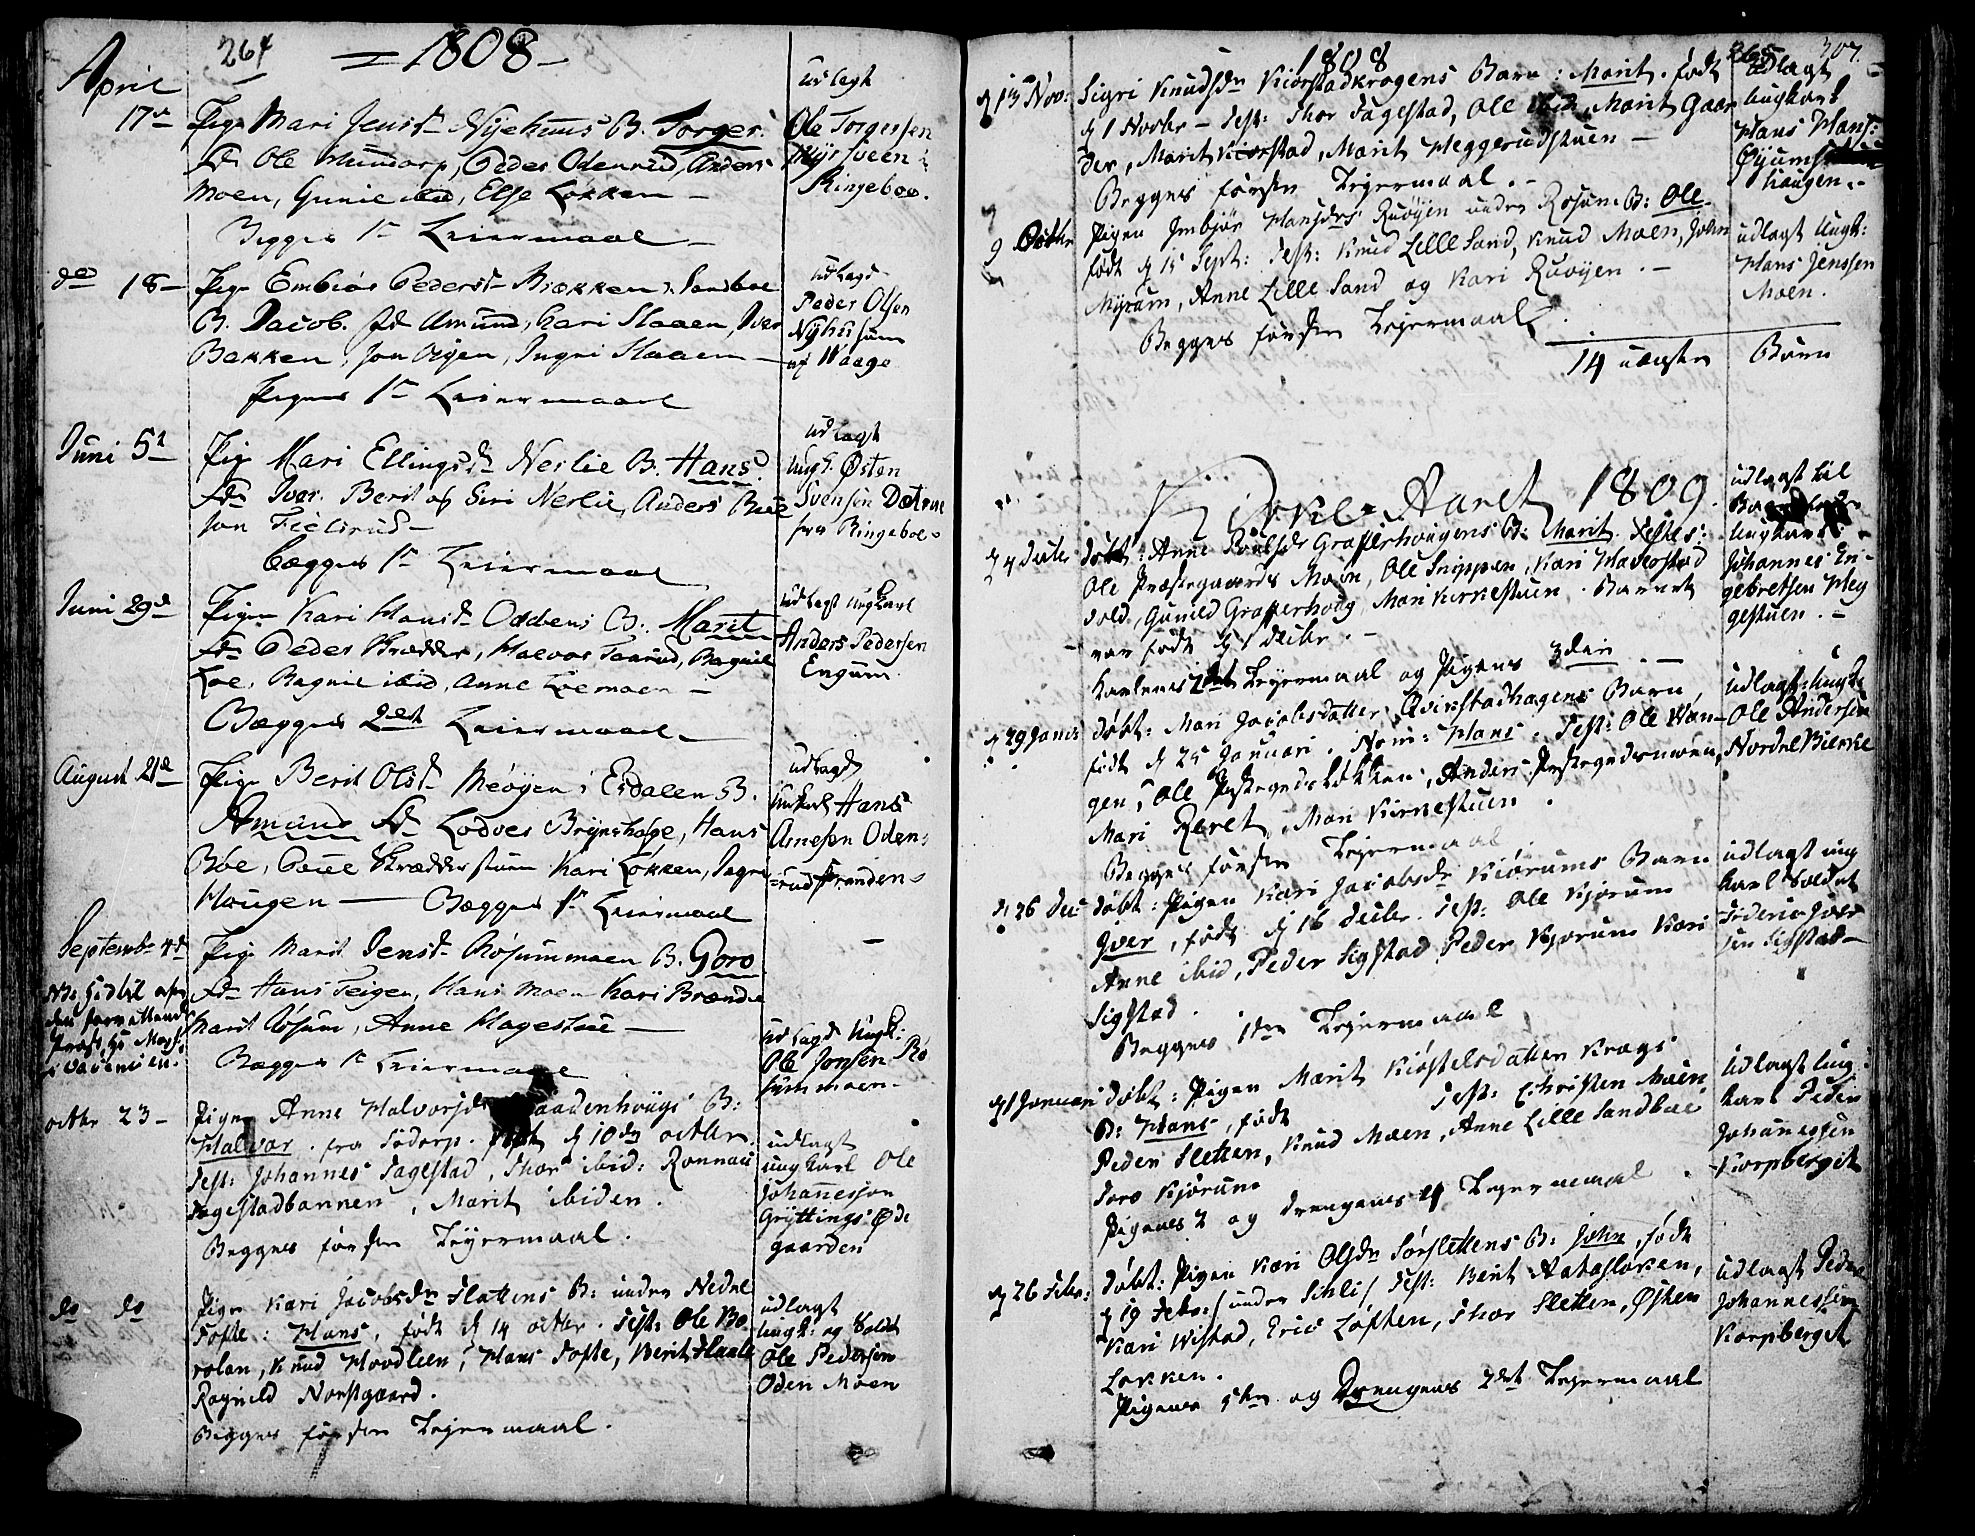 264
=1808-
April
17de Pige Mari Jensdr Nÿehuus B. Torger.
Fdr Ole Hundorp, Peder Odenrud, Anders
Moen, Gunil ibid, Else Løkken -
Begges 1ste Leiermaal -
udlagt
Ole Torgersen
Ringeboe.
do 18- Pige Embiør Pedersdr Brækken Sandboe
B. Jacob. Fdr Amund, Kari Slaaen, Iver
Bakken, Jon Øÿen, Ingri Slaaen -
Pigens 1ste Leiermaal
udlagt
Peder Olsen
Nÿhuusum
af Waage
Juni 5te Pige Mari Ellingsdr Nerlie B. Hans.
Fdr Iver, Berit og Siri Nerlie, Anders Bue
Jon Fieldrud -
begges 1ste Leiermaal
udlagt
ungk. Østen
Svensen
fra Ringeboe-
Juni 29de Pige Kari Hansdr Oddens B. Marit
Fdr Peder Skrædder, Halvor Taarud, Ragnil
Loe, Ragnil ibid, Anne Loemoen -
Begges 2det Leiermaal
udlagt ungkarl
Anders Pedersen
Engum
August 21de Pige Berit Olsdr Møÿen i Esdalen B.
Amund Fdr Lodver Brÿnshage, Hans
Boe, Poul Skrædderstuen Kari Løkken,
Haugen - Begges 1ste Leiermaal
udlagt
ungkarl Hans
Arnesen Oden-
rudstranden-
Septembr 4de Pige Marit Jensdr Røsummoen B. Goro
Fdr Hans Teigen, Hans Moen Kari Brænd
Marit Røsum, Anne Hagestue -
Begges 1ste Leiermaal
udlagt Ungk:
Ole Jonsen Rø
summoen-
octbr 23- Pige Anne Halvorsdr Haadenhougs B:
Halvor. fra Søderp. født d 10de octbr.
Test: Johannes Fagestad, Thor ibid: Rønnau
Fagestadbannen, Marit ibiden.
Begges første Leÿermaal.
udlagt
ungkarl Ole
Johannesson
Grÿttings Øde
gaarden
do do Pige Kari Jacobsdr Slattens B: under Nedre
Tofte: Hans, født d 14 octbr. Test: Ole Bo
rolan, Knud Hovdlien, Hans Tofte, Berit Slaale
Ragnild Nordgaard.
Begges første Leÿermaal.
udlagt
Ungk: og Soldt
Ole Pedersen
Oden Moen
1808
265
307.
d 13 Nov: Sigri Knudsdr Kiørstadkrogens Barn: Marit. født
d 1 Novbr - Test: Thor Fagestad, Ole ibid, Marit Gaar
der, Marit Kiørstad, Marit Heggerudstuen -
Begges første Leÿermaal. -
Udlagt
Ungkarl
Hans Hans:
Øÿum
haugen.-
9 Octbr Pigen Imbjør Hansdr Ruøÿen under Rosum B: Ole
født d 15 Sept: Test: Knud Lille Sand, Knud Moen, John
Mÿrum, Anne Lille Sand og Kari Ruøÿen. -
Begges første Leÿermaal.
udlagt Ungk:
Hans Jenssen
Moen.
14 uægte Børn
Kirke-Aaret 1809.
d 4 Decbr Døbt: Anne Poulsdr Graperhougens B: Marit. Testes:
Ole Præstegaards Moen, Ole Snippen, Kari Haverstad
vold, Gunild Graperhoug, Mari Kirkestuen. Barnet
var født d 1 Decbr. -
Karlens 2det Leÿermaal og Pigens 3die. -
udlagt til
Ungkarl
Johannes En-
gebretsen Heg
gestuen. -
d 29 Janr Døbt: Mari Jacobsdatter Qvirstadhagens Barn,
født d 25 Januari. Nom: Hans. Test: Ole Wan-
gen, Ole Præstegrdsløkken, Anders Præstegrdsmoen,
Mari Reret, Mari Kirkestuen.
Begges første Leÿermaal
udlagt: Ungk:
Ole Andersen
Nordre Bierke
d 26 Dec Døbt: Pigen Kari Jacobsdr Kiørums Barn
Iver, født d 16 Decbr. Test: Ole Kjørum
Anne ibid, Peder Sigstad Peder Kjørum Kari
Sigstad.
Begges 1ste Leÿermaal
udlagt ung
karl Soldat
Frideric Iver
sen Sigstad-
d 1 Januari Døbt: Pigen Marit Kiøstelsdatter Krogs
B: Hans, født Test: Christen Moen
Peder Sletten, Knud Moen, Anne Lille Sandboe
Goro Kjørum
Pigens 2 og Drengens 4 Leÿermaal.
Udlagt ung
karl Peder
Johannessen
Korpberget
d 26 Febr: Døbt: Pigen Kari Olsdr Sørslettens B: John, født
d 19 Febr: /under Schli/ Test: Berit Aabasløken,
Kari Wistad, Eric Løften, Thor Sletten, Østen
Løkken.
Pigens 5te og Drengens 2det Leÿermaal
udlagt Peder
Johannessen
Korpberget